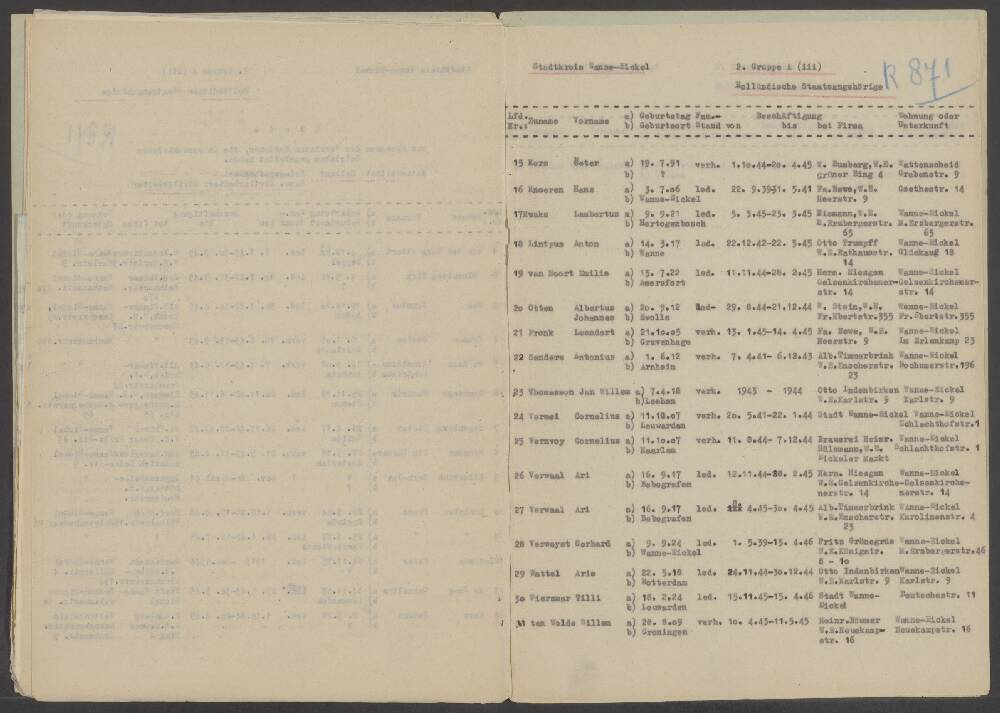 Stadtkreis Wanne-Eickel 2. Gruppe A (iii)
Holländische Staatsangehörige R 871
Lfd. Zuname Vorname a) Geburtstag Fam.- Beschäftigung Wohnung oder
Nr.: b) Geburtsort Stand von bis bei Firma Unterkunft
15 Kers Peter a) 19. 7.91 verh. 1.10.44-20. 4.45 W. Wattenscheid
b) ? grüner Ring 4 Grabenstr. 9
16 Knoeren Hans a) 3. 7.06 led. 22. 9.3931. 5.41 Fa.Hewe,W.E. Goethestr. 14
b) Wanne-Eickel Heerstr. 9
17Kwaks Lambertus a) 9. 9.21 led. 5. 3.45-23. 3.45 W.E. Wanne-Eickel
b) Hertogenbosch M.Erzbergerstr. M.Erzbergerstr.
65 65
18 Lintyus Anton a) 14. 3.17 led. 22.12.42-22. 5.45 Otto Trumpff Wanne-Eickel
b) Wanne W.E.Rathausstr. Glückauf 18
14
19 van Noort Emilie a) 13. 7.22 led. 11.11.44-28. 2.45 Herm. Hiesgen Wanne-Eickel
b) Amersfort Gelsenkirchener-Gelsenkirchener-
str. 14 str. 14
20 Otten Albertus a) 20. 9.12 led- 29. 8.44-21.12.44 W. Stein,W.E. Wanne-Eickel
Johannes b) Zwolle Fr.Ebertstr.355 Fr.Ebertstr.355
21 Pronk Leendert a) 21.10.05 verh. 13. 1.45-14. 4.45 Fa. Hewe, W.E. Wanne-Eickel
b) Gravenhage Heerstr. 9 Im Erlenkamp 23
22 Sanders Antonius a) 1. 6.12 verh. 7. 4.41- 6.12.43 Alb.Timmerbrink Wanne-Eickel
b) Arnheim W.E.Emscherstr. Bochumerstr.196
23
23 Thomasson Jan Willem a) 7.4.18 verh. 1943 - 1944 Otto Indenbirken Wanne-Eickel
b) W.E.Karlstr. 9 Karlstr. 9
24 Vermei Cornelius a) 11.18.07 verh. 20. 5.41-22. 1.44 Stadt Wanne-Eickel Wanne-Eickel
b) Leuwarden Schlachthofstr.1
25 Vernvoy Cornelius a) 11.10.07 verh. 11. 8.44- 7.12.44 Brauerei Heinr. Wanne-Eickel
b) Haarlem Hülsmann,W.E. Schlachthofstr. 1
Eickeler Markt
26 Verwaal Ari a) 16. 9.17 led. 12.11.44-28. 2.45 Herm. Hiesgen Wanne-Eickel
b) Bebegrafen W.E.Gelsenkirche-Gelsenkirche-
nerstr. 14 nerstr. 14
27 Verwaal Ari a) 16. 9.17 led. 4.45-30. 4.45 Alb.Timmerbrink Wanne-Eickel
b) Bebegrafen W.E.Emscherstr. Karolinenstr. 4
23
28 Verweyst Gerhard a) 9. 9.24 led. 1. 5.39-15. 4.46 Fritz Grünegras Wanne-Eickel
b) Wanne-Eickel W.E.Königstr. M.Erzbergerstr.46
8 - 10
29 Wattel Arie a) 22. 3.18 led. 24.11.44-30.12.44 Otto IndenbirkenWanne-Eickel
b) Rotterdam W.E.Karlstr. 9 Karlstr. 9
30 Wiermar Tilli a) 18. 2.24 led. 15.11.45-15. 4.46 Stadt Wanne- Deutschestr. 11
b) Leuwarden Eickel
31 ten Wolde Willem a) 28. 8.09 verh. 10. 4.43-11.5.45 Heinr.Bäumer Wanne-Eickel
b) Groningen W.E.Heuekamp- Heuekampstr. 16
str. 16